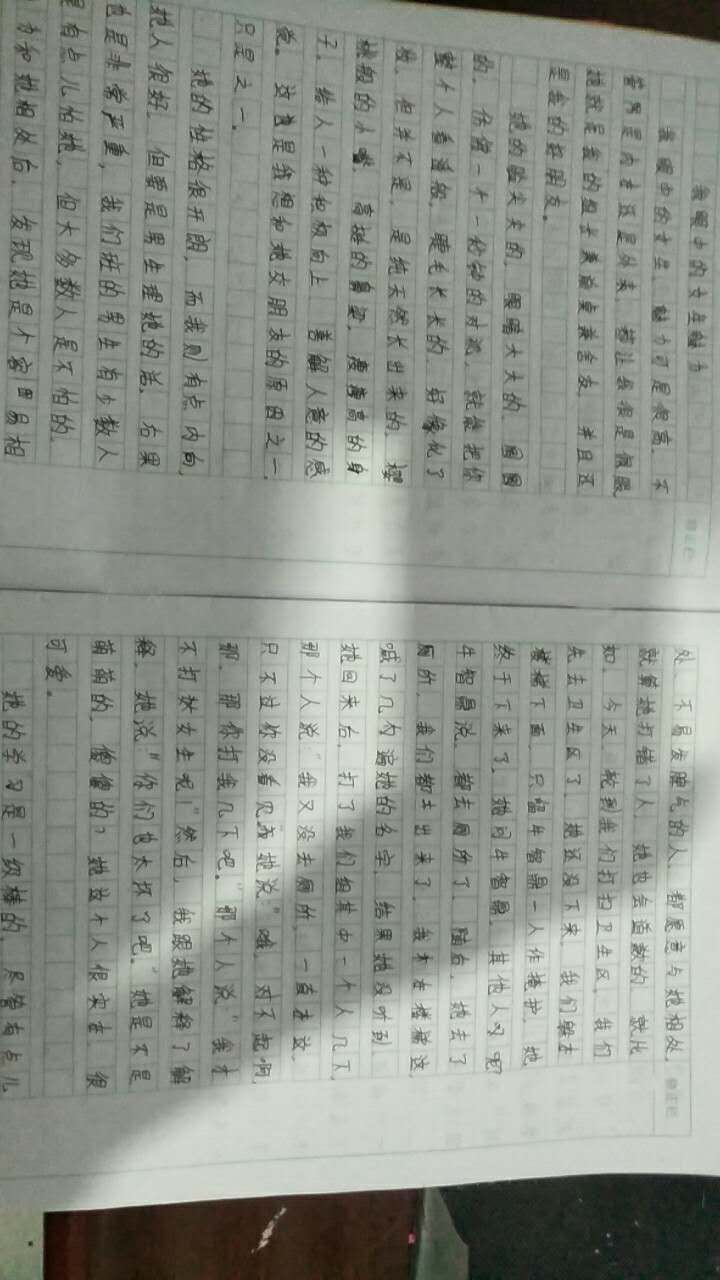 我眼中的女生魅力
我眼中的女生，魅力可是很高，不
管男是内在还是外表，都让我很是佩服
她就是我的，并且还
是我的好朋友。
她的脸尖尖的，眼睛大大的，圆圆
的，你跟一个一秒钟的对视，就能把你
整个人看透般，睫毛长长的，好像化了
妆，但并不是，是纯天然长出来的，樱
桃般的小嘴，高挺的鼻梁，瘦高高的身
子，给人一种积极向上，善解人意的感
觉。这也是我想和她交朋友的原因之一，
只是之一。
她的性格很开朗，而我则有点内向，
她人很好，但要是男生理她的话，后果
也是非常严重，我们班的男生有少数人
是有点儿怕她，但大多数人是不怕的。
和她相处后，发现她是个容易相
处，不易发脾气的人，都愿意与她相处，
就算她打错了人，她也会道歉的，就比
如，今天，轮到我们打扫卫生区，我们
先去卫生区了，她还没下来，我们躲在
楼梯下面，只留牛智鼎一人作掩护，她
终于下来了，她问牛智鼎，其他人呢
牛智鼎说，都去厕所了，随后，她去了
厕所，我们都出来了，我才在楼梯这
喊了几句遍她的名字，结果她没听到
她回来后，打了我们组其中一个人几下
那个人说："我又没去厕所，一直在这，
只不过你没看见"她说："哦，对不起啊，
那，那你打我几下吧。"那个人说："我才
不打女生呢！"然后，我跟她解释了解
释，她说："你们也太坏了吧。"她是不是
萌萌的，傻傻的？她这个人很实在，很
可爱。
她的学习是一级棒的，尽管有点儿